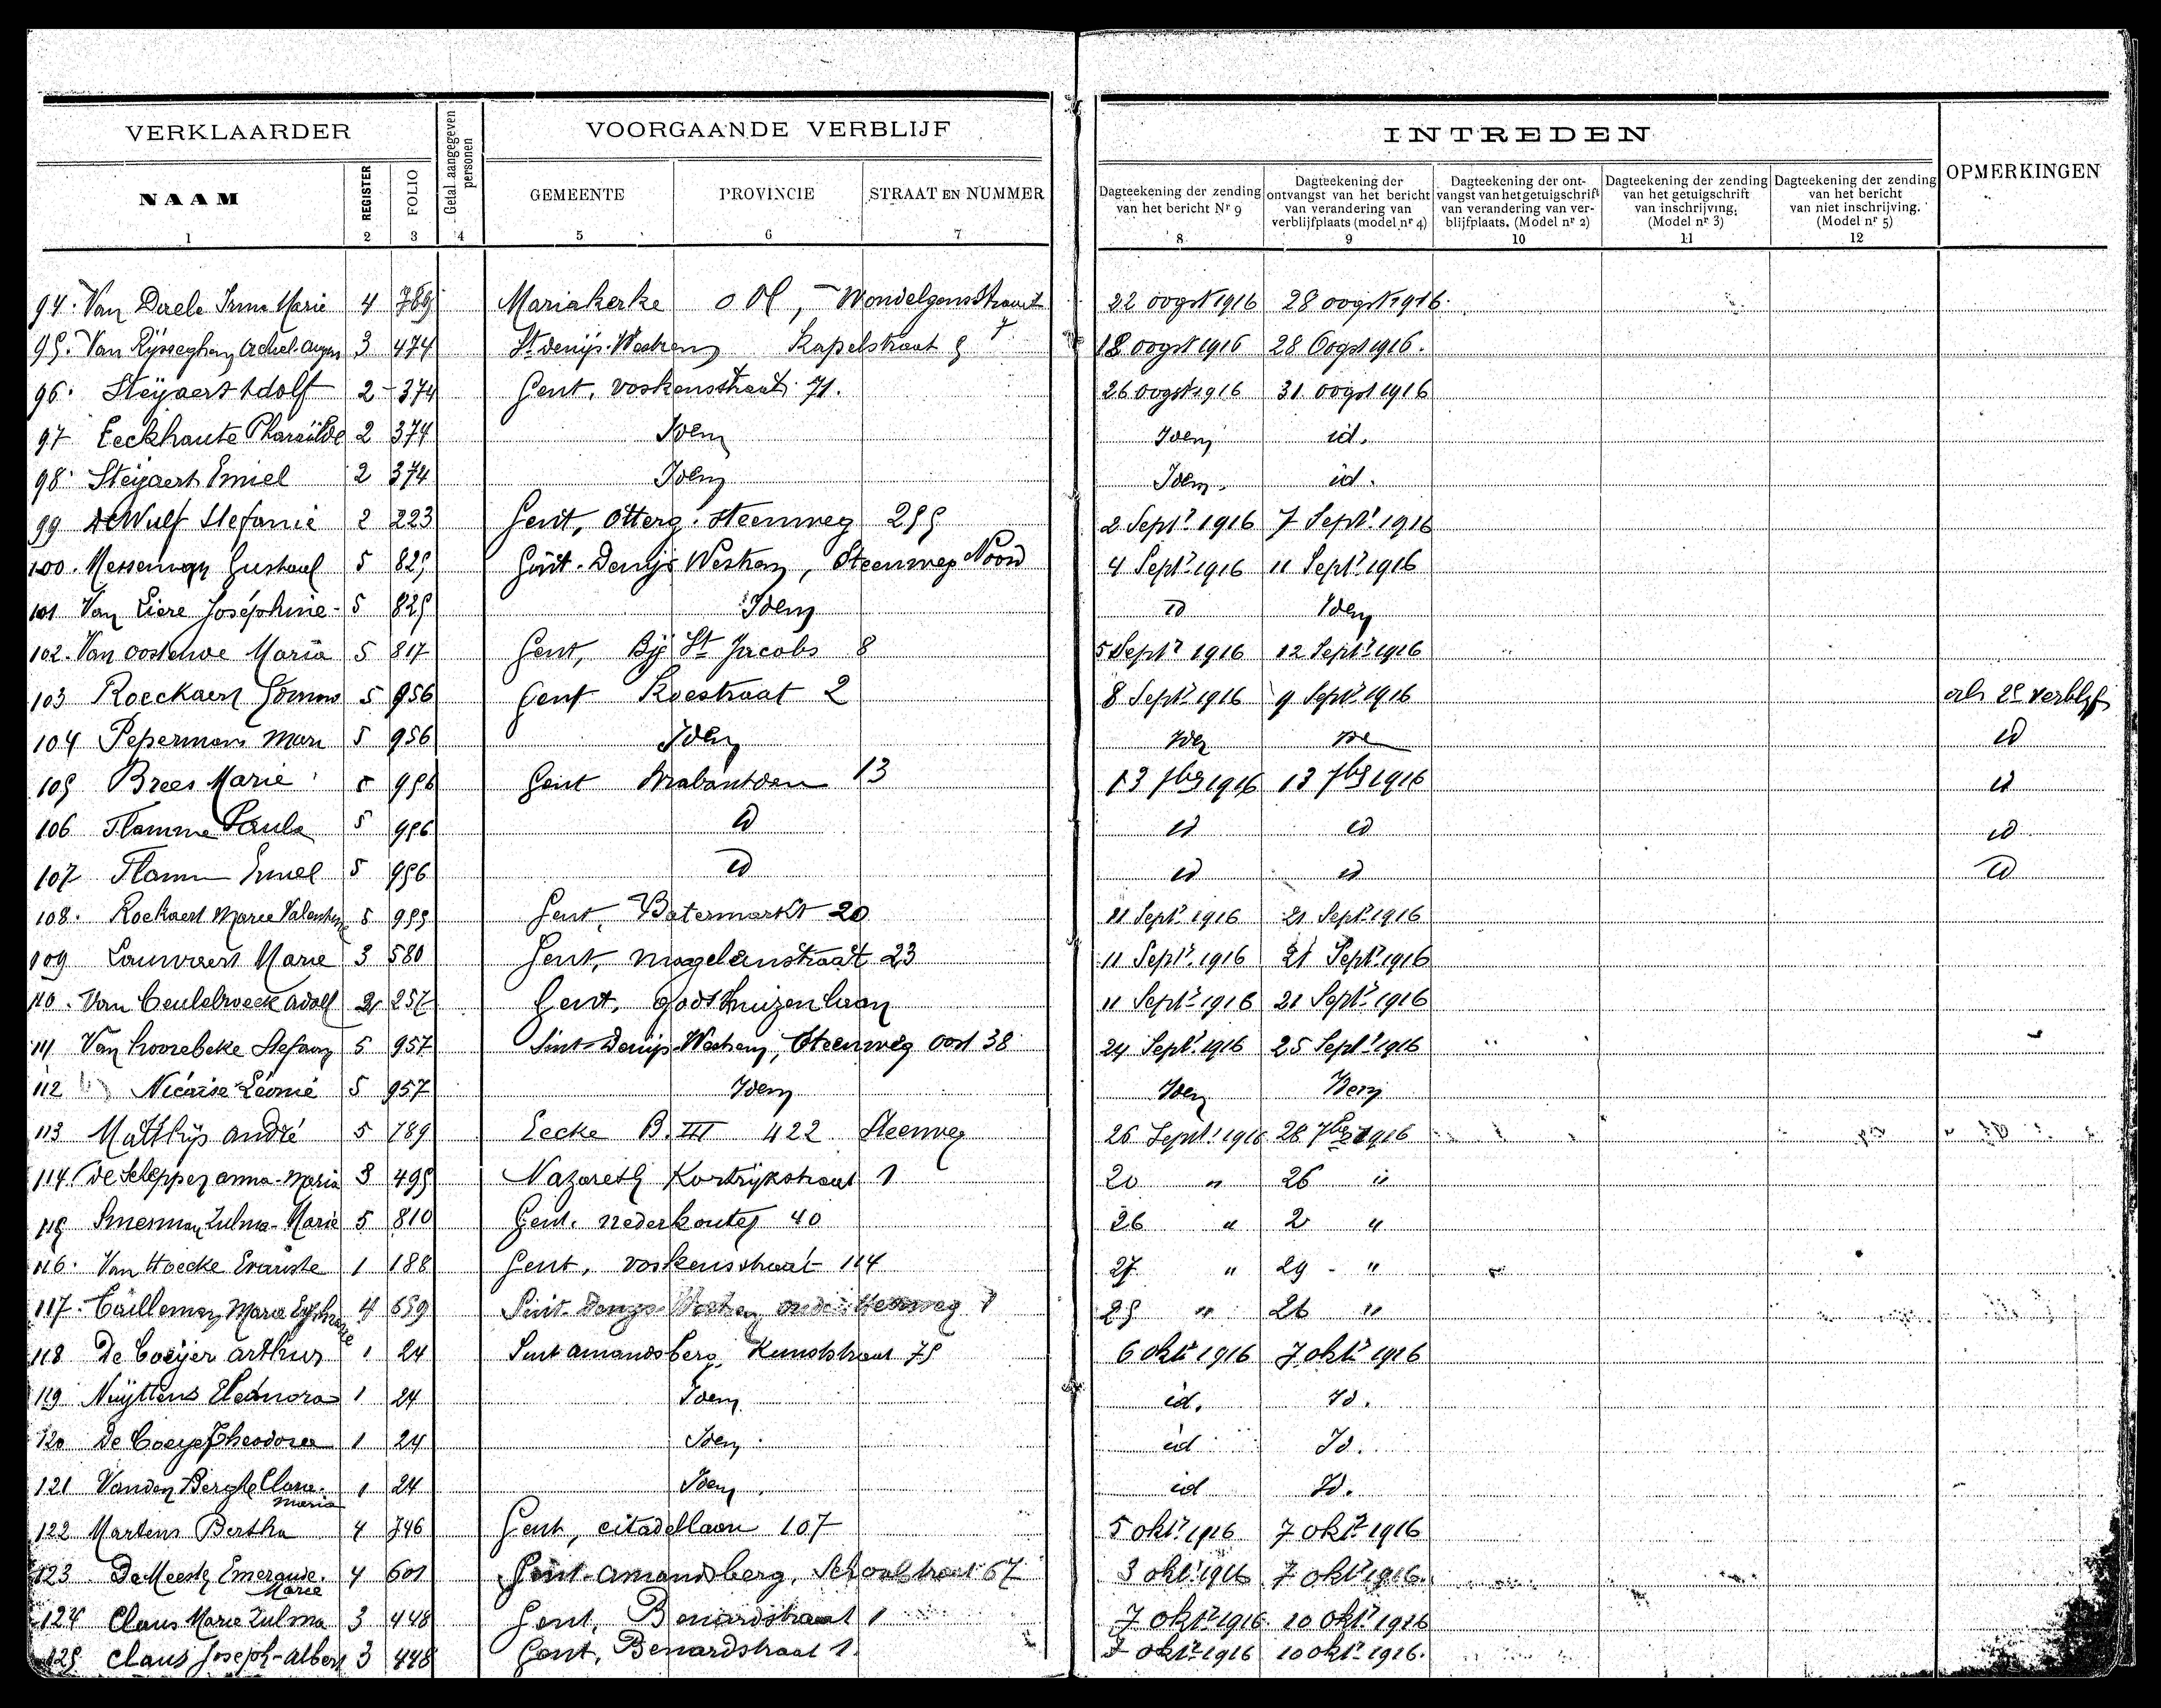 VERKLAARDER
Getal aangegeven personen
VOORGAANDE VERBLIJF
INTREDEN
OPMERKINGEN
NAAM REGISTER FOLIO GEMEENTE PROVINCIE STRAAT EN NUMMER
Dagteekening der zending van het bericht Nr 9
Dagteekening der ontvangst van het bericht van verandering van verblijfplaats (model nr 4)
Dagteekening der ont-vangst van het getuigschrift van verandering van ver-blijfplaats. (Model nr 2)
Dagteekening der zending van het getuigschrift van inschrijving. (Model nr 3)
Dagteekening der zending van het bericht van niet inschrijving. (Model nr 5)
1 2 3 4 5 6 7 8 9 10 11 12
94. Van Daele Irma Marie 4 769 Mariakerke O Vl, Wondelgemstraat 7 22 oogst 1916 28 oogst 1916.
95. Van Rijsseghem Achel 3 474 St Denijs-Westrem Kapelstraat 9 18 oogst 1916 28 Oogst 1916.
96. Steijaert Adolf 2 - 374 Gent, Voskensstraat 71. 26 oogst 1916 31 oogst 1916
97 Eeckhaute Pharaïlde 2 374 Idem Idem id.
98. Steijaert Emiel 2 374 Idem Idem. id.
99 De Wulf Stefanie 2 223 Gent, Otterg. Steenweg 299 2 Septr 1916 7 Septr 1916
100. Messeman Gustaaf 5 829 Sint-Denijs Westrem, Steenweg Noord 4 Septr 1916 11 Septr 1916
101 Van Liere Joséphine - 5 829 Idem id Idem
102. Van Oostende Maria 5 817 Gent, Bij St Jacobs 8 5 Septr 1916 12 Septr 1916
103 Roeckaert 5 956 Gent Koestraat 2 8 Septr 1916 9 Septr 1916 als 2e verblijf
104 Pepermans Marie 5 956 Idem Idem Idem id
105 Brees Marie 5 956 Gent Brabantdam 13 13 7ber 1916 13 7ber 1916 id
106 Flamme Paula 5 956 id id id id
107 Flamme Emiel 5 956 id id id id
108. Roekaert Marie Valentine 5 959 Gent, Botermarkt 20 11 Septr 1916 21 Septr 1916
109 Lauwaert Marie 3 580 Gent, Magelenstraat 23 11 Septr 1916 21 Septr 1916
110. Van Ceulebroeck Adolf 2 257 Gent, Godshuizenlaan 11 Septr 1916 21 Septr 1916
111 Van Hoorebeke Stefany 5 957 Sint-Denijs-Westrem, Steenweg Oost 38 24 Septr 1916 25 Septr 1916
112 Nicaise Léonie 5 957 Idem Idem Idem
113 Matthijs André 5 789 Eecke B. III 422 Steenweg 26 Septr 1916 28 7ber 1916
114. De Schepper Anna-Maria 3 499 Nazareth Kortrijkstraat 1 20 " 26 "
115 Smesman Zulma-Marie 5 810 Gent. Nederkouter 40 26 " 2 "
116. Van Hoecke Evariste 1 188 Gent, Voskensstraat 114 27 " 29 - "
117. Cailleman Marie Euphrasie 4 659 Sint-Denijs-Westrem Steenweg 1 25 " 26 "
118 De Coeijer Arthur 1 24 Sint Amandsberg, Kunststraat 75 6 oktr 1916 7 oktr 1916
119 Nuijttens Eleonora 1 24 Idem id. Id.
120 De Coeyer Theodora 1 24 Idem id Id.
121 Vanden Berghe Clara Maria 1 24 Idem. id Id.
122 Martens Bertha 4 746 Gent, Citadellaan 107 5 oktr 1916 7 oktr 1916
123 De Meester Emeraude Marie 4 601 Sint-Amandsberg, Schoolstraat 67 3 oktr 1916 7 oktr 1916.
124 Claus Marie Zulma 3 448 Gent, Benardstraat 1 7 oktr 1916 10 oktr 1916
125 Claus Joseph-Albert 3 448 Gent, Benardstraat 1. 7 oktr 1916 10 oktr 1916.